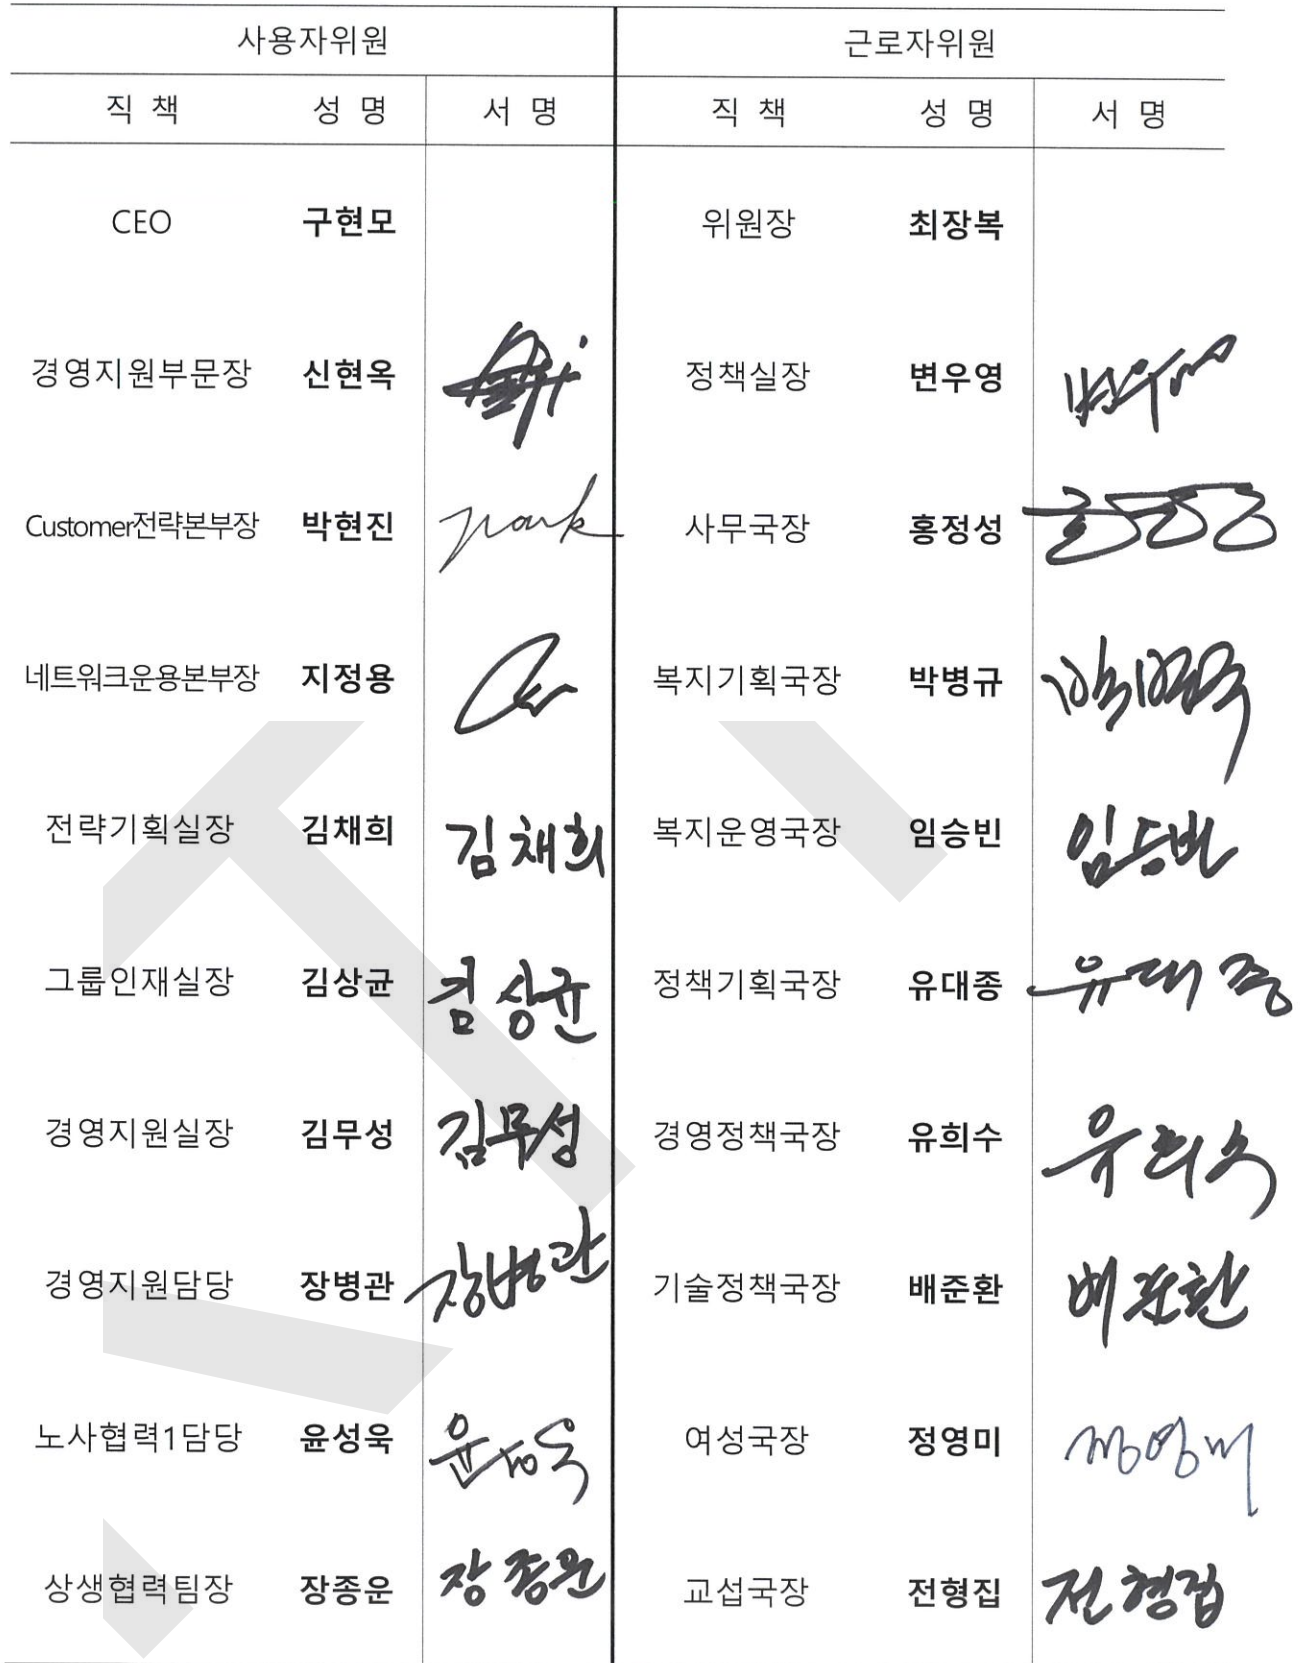 사용자위원 근로자위원
직 책 성 명 서 명 직 책 성 명 서 명
CEO 구현모 위원장 최장복
경영지원부문장 신현옥 정책실장 변우영
Customer전략본부장 박현진 park 사무국장 홍정성
네트워크운용본부장 지정용 복지기획국장 박병규
전략기획실장 김채희 김채희 복지운영국장 임승빈 임승빈
그룹인재실장 김상균 김상균 정책기획국장 유대종 유대종
경영지원실장 김무성 김무성 경영정책국장 유희수 유희수
경영지원담당 장병관 장병관 기술정책국장 배준환 배준환
노사협력1담당 윤성욱 윤성욱 여성국장 정영미 정영미
상생협력팀장 장종운 장종운 교섭국장 전형집 전형집